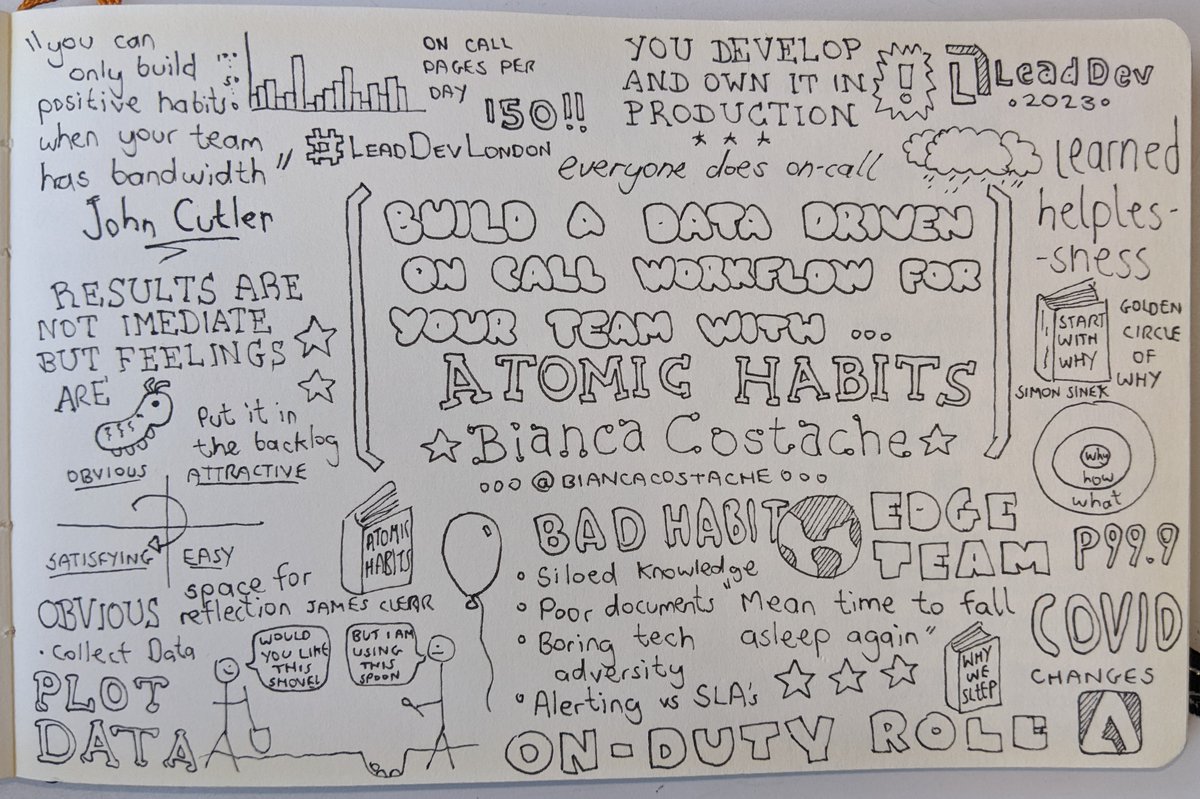 "you can
only build
positive habits
when your team
has bandwidth"
John Cutler
100
50
ON CALL
PAGES PER
DAY
150!!
#LEADDEVLONDON
YOU DEVELOP
AND OWN IT IN
PRODUCTION
everyone does on-call
!
LeadDev
2023
learned
helples-
-sness
BUILD A DATA DRIVEN
ON CALL WORKFLOW FOR
YOUR TEAM WITH ...
ATOMIC HABITS
Bianca Costache
@BIANCACOSTACHE
RESULTS ARE
NOT IMEDIATE
BUT FEELINGS
ARE
Put it in
the backlog
OBVIOUS
ATTRACTIVE
SATISFYING
EASY
space for
reflection
ATOMIC
HABITS
JAMES CLEAR
OBVIOUS
• Collect Data
PLOT
DATA
WOULD
YOU LIKE
THIS
SHOVEL
BUT I AM
USING
THIS
SPOON
BAD HABIT
• Siloed Knowledge
• Poor documents
• Boring tech
adversity
• Alerting vs SLA's
START
WITH
WHY
SIMON SINEK
GOLDEN
CIRCLE
OF
WHY
why
how
what
EDGE
TEAM
P99.9
"Mean time to fall
asleep again"
WHY
WE
SLEEP
COVID
CHANGES
ON-DUTY ROLE